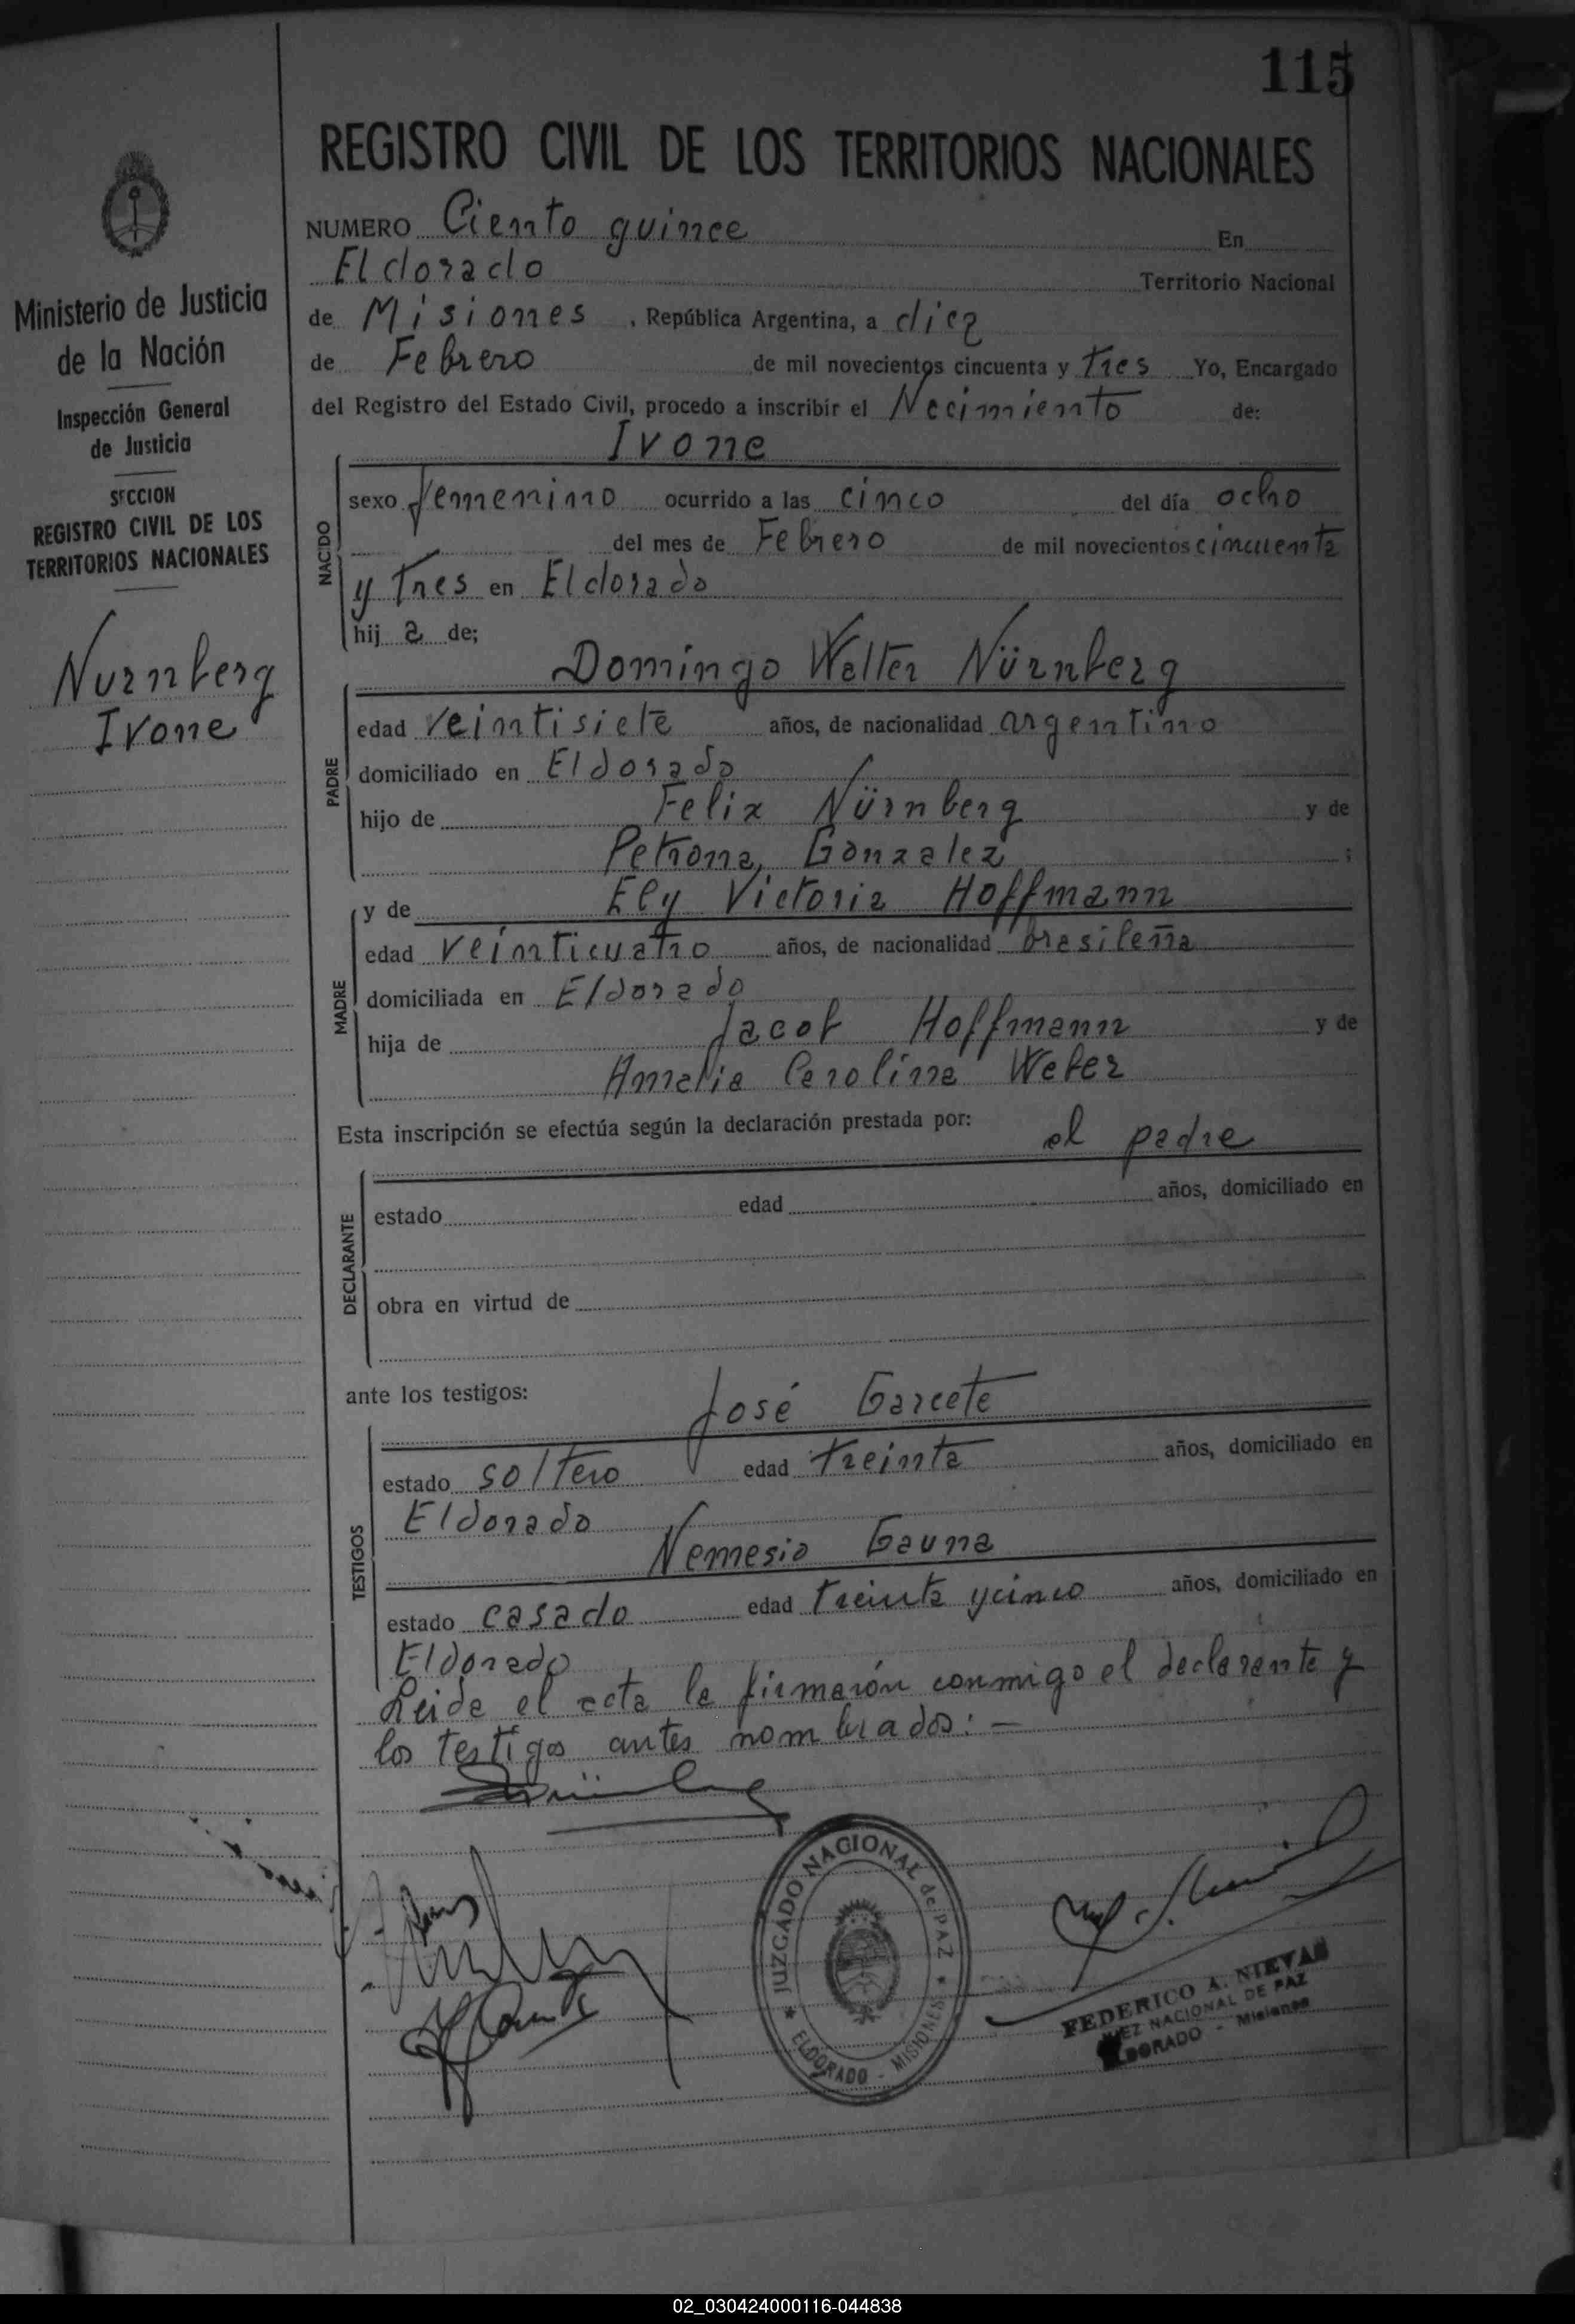 115
REGISTRO CIVIL DE LOS TERRITORIOS NACIONALES
Ministerio de Justicia
de la Nación
Inspección General
de Justicia
SECCION
REGISTRO CIVIL DE LOS
TERRITORIOS NACIONALES
Nurnberg
Ivone
NUMERO Ciento quince En
Eldorado Territorio Nacional
de Misiones , República Argentina, a diez
de Febrero de mil novecientos cincuenta y tres Yo, Encargado
del Registro del Estado Civil, procedo a inscribir el Nacimiento de:
Ivone
NACIDO
sexo femenino ocurrido a las cinco del día ocho
del mes de Febrero de mil novecientos cincuenta
y tres en Eldorado
hij a de;
Domingo Walter Nürnberg
PADRE
edad veintisiete años, de nacionalidad argentino
domiciliado en Eldorado
hijo de Felix Nürnberg y de
Petrona Gonzalez ;
y de Ely Victoria Hoffmann
MADRE
edad veinticuatro años, de nacionalidad brasileña
domiciliada en Eldorado
hija de Jacob Hoffmann y de
Amelia Carolina Weber
Esta inscripción se efectúa según la declaración prestada por: el padre
DECLARANTE
estado edad años, domiciliado en
obra en virtud de
ante los testigos: José Garcete
TESTIGOS
estado soltero edad treinta años, domiciliado en
Eldorado
Nemesio Gauna
estado casado edad treinta y cinco años, domiciliado en
Eldorado
Leida el acta la firmarón conmigo el declarante y
los testigos antes nombrados: —
JUZGADO NACIONAL de PAZ
ELDORADO - MISIONES
FEDERICO A. NIEVAS
JUEZ NACIONAL DE PAZ
ELDORADO - Misiones
02_030424000116-044838